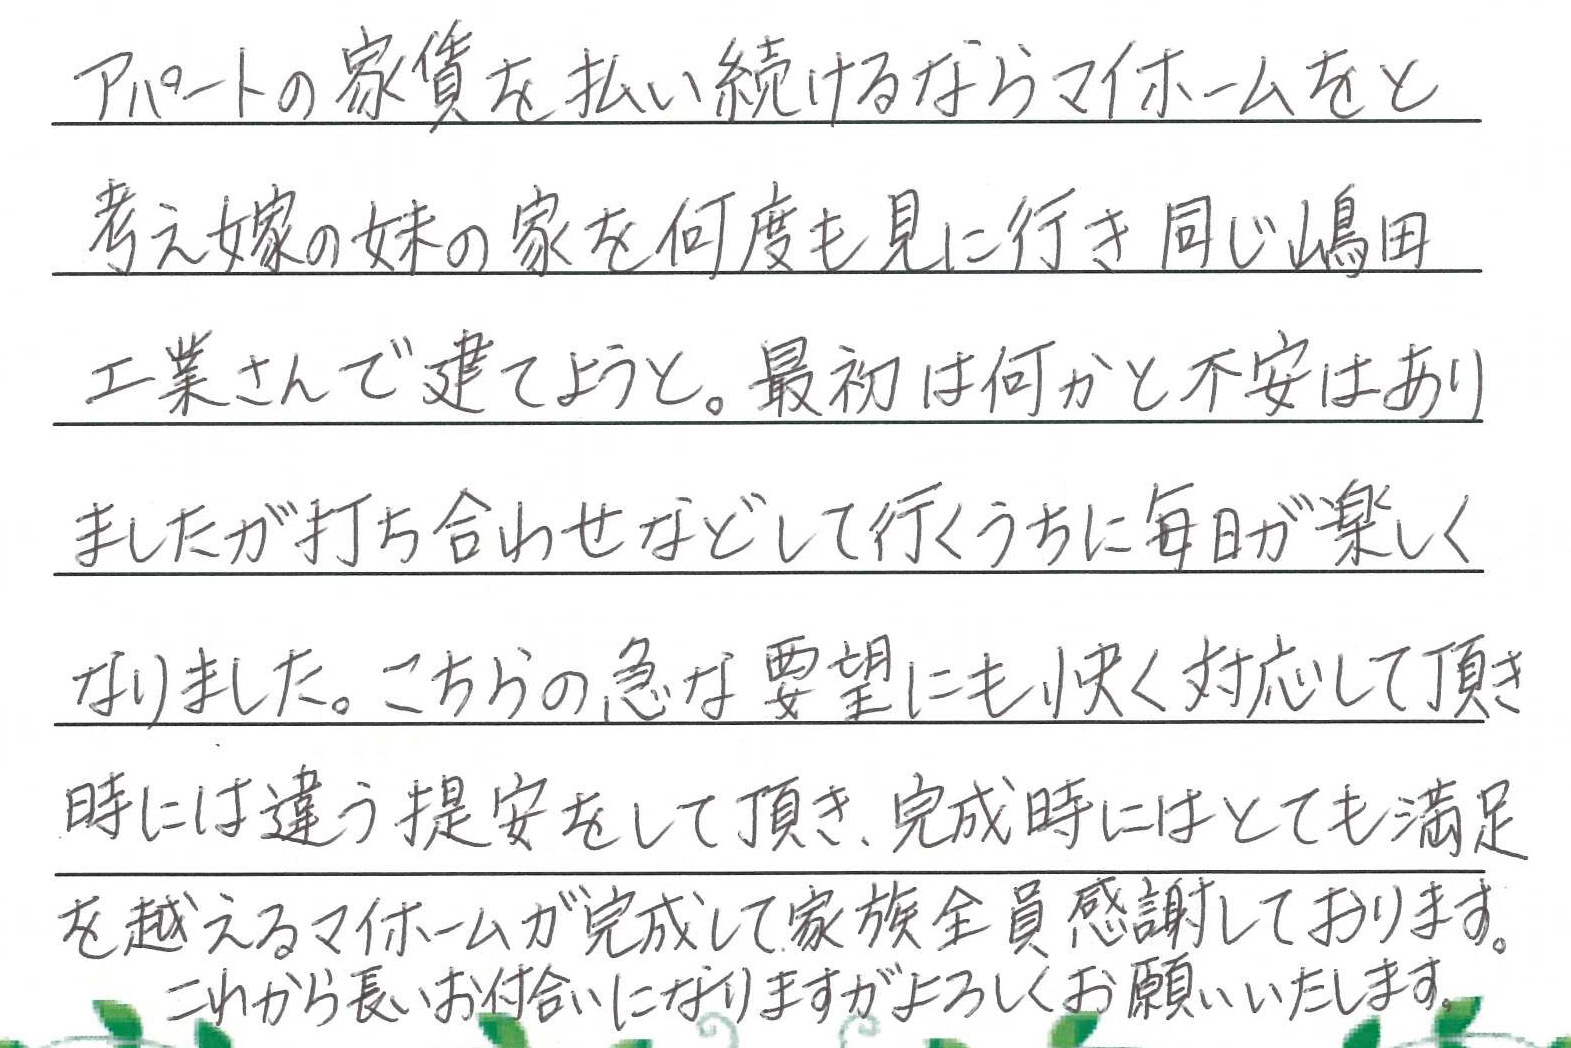 アパートの家賃を払い続けるならマイホームをと
考え嫁の妹の家を何度も見に行き同じ嶋田
工業さんで建てようと。最初は何かと不安はあり
ましたが打ち合わせなどして行くうちに毎日が楽しく
なりました。こちらの急な要望にも快く対応して頂き
時には違う提安をして頂き、完成時にはとても満足
を越えるマイホームが完成して家族全員感謝しております。
これから長いお付合いになりますがよろしくお願いいたします。